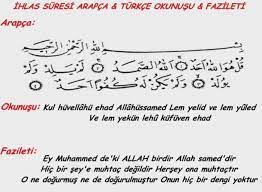 İHLAS SÛRESİ ARAPÇA & TÜRKÇE OKUNUŞU & FAZİLETİ
Arapça:
بِسْمِ اللّٰهِ الرَّحْمٰنِ الرَّحِيمِ
قُلْ هُوَ اللّٰهُ اَحَدٌ ﴿١﴾ اَللّٰهُ الصَّمَدُ ﴿٢﴾ لَمْ يَلِدْ وَلَمْ
يُولَدْ ﴿٣﴾ وَلَمْ يَكُنْ لَهُ كُفُوًا اَحَدٌ ﴿٤﴾
Okunuşu: Kul hüvellâhü ehad Allâhüssamed Lem yelid ve lem yûled
Ve lem yekün lehû küfüven ehad
Fazileti:
Ey Muhammed de'ki ALLAH birdir Allah samed'dir
Hiç bir şey'e muhtaç değildir Herşey ona muhtaçtır
O ne doğurmuş ne de doğurulmuştur Onun hiç bir dengi yoktur